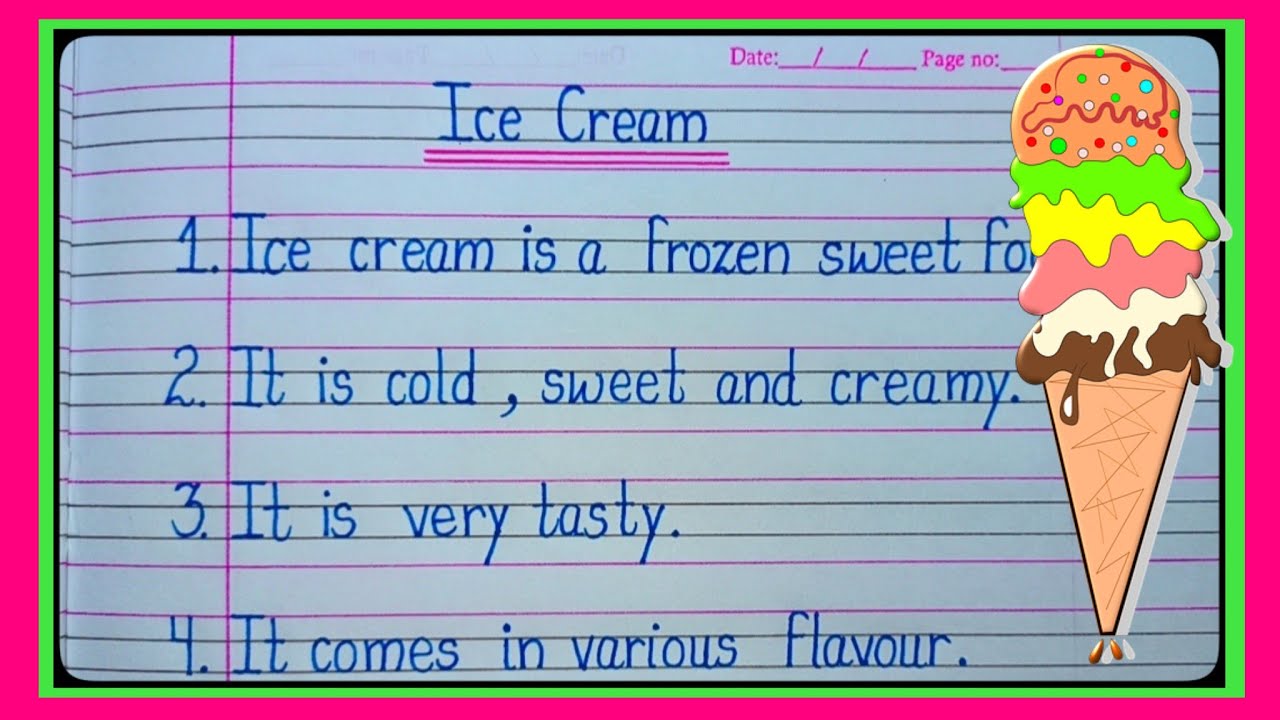 Date:___/___/____ Page no:___
Ice Cream
1. Ice cream is a frozen sweet
2. It is cold, sweet and creamy.
3. It is very tasty.
4. It comes in various flavour.